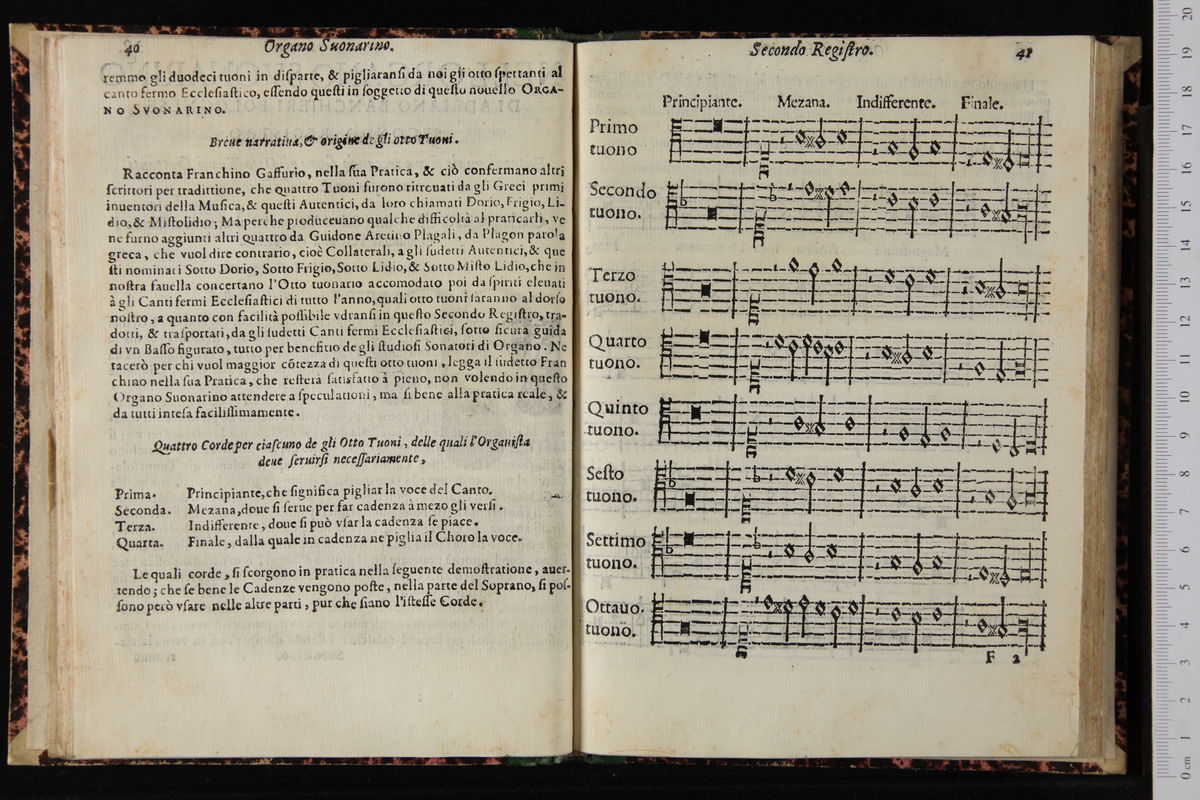 40
Organo Suonarino.
remmo gli duodeci tuoni in diſparte, & pigliaranſi da noi gli otto ſpettanti al
canto fermo Eccleſiaſtico, eſſendo queſti in ſoggetto di queſto nouello ORGA-
NO SVONARINO.
Breue narratiua, & origine de gli otto Tuoni.
Racconta Franchino Gaffurio, nella ſua Pratica, & ciò confermano altri
ſcrittori per tradittione, che quattro Tuoni furono ritrouati da gli Greci primi
inuentori della Muſica, & queſti Autentici, da loro chiamati Dorio, Frigio, Li-
dio, & Miſtolidio; Ma perche produceuano qualche difficoltà al praticarli, ve
ne furno aggiunti altri quattro da Guidone Aretino Plagali, da Plagon parola
greca, che vuol dire contrario, cioè Collaterali, a gli ſudetti Autentici, & que
ſti nominati Sotto Dorio, Sotto Frigio, Sotto Lidio, & Sotto Miſto Lidio, che in
noſtra fauella concertano l'Otto tuonario accomodato poi da ſpiriti eleuati
à gli Canti fermi Eccleſiaſtici di tutto l'anno, quali otto tuoni ſaranno al dorſo
noſtro, a quanto con facilità poſſibile vdranſi in queſto Secondo Regiſtro, tra-
dotti, & traſportati, da gli ſudetti Canti fermi Eccleſiaſtici, ſotto ſicura guida
di vn Baſſo figurato, tutto per benefitio de gli ſtudioſi Sonatori di Organo. Ne
tacerò per chi vuol maggior cõtezza di queſti otto tuoni, legga il ſudetto Fran
chino nella ſua Pratica, che reſterà ſatisfatto à pieno, non volendo in queſto
Organo Suonarino attendere a ſpeculationi, ma ſi bene alla pratica reale, &
da tutti inteſa faciliſſimamente.
Quattro Corde per ciaſcuno de gli Otto Tuoni, delle quali l'Organiſta
deue ſeruirſi neceſſariamente,
Prima. Principiante, che ſignifica pigliar la voce del Canto.
Seconda. Mezana, doue ſi ſerue per far cadenza à mezo gli verſi.
Terza. Indifferente, doue ſi può vſar la cadenza ſe piace.
Quarta. Finale, dalla quale in cadenza ne piglia il Choro la voce.
Le quali corde, ſi ſcorgono in pratica nella ſeguente demoſtratione, auer-
tendo; che ſe bene le Cadenze vengono poſte, nella parte del Soprano, ſi poſ-
ſono però vſare nelle altre parti, pur che ſiano l'iſteſſe Corde.
Secondo Regiſtro.
41
Principiante. Mezana. Indifferente. Finale.
Primo
tuono
Secondo
tuono.
Terzo
tuono.
Quarto
tuono.
Quinto
tuono.
Seſto
tuono.
Settimo
tuono.
Ottauo.
tuono.
F 2
0 cm 1 2 3 4 5 6 7 8 9 10 11 12 13 14 15 16 17 18 19 20